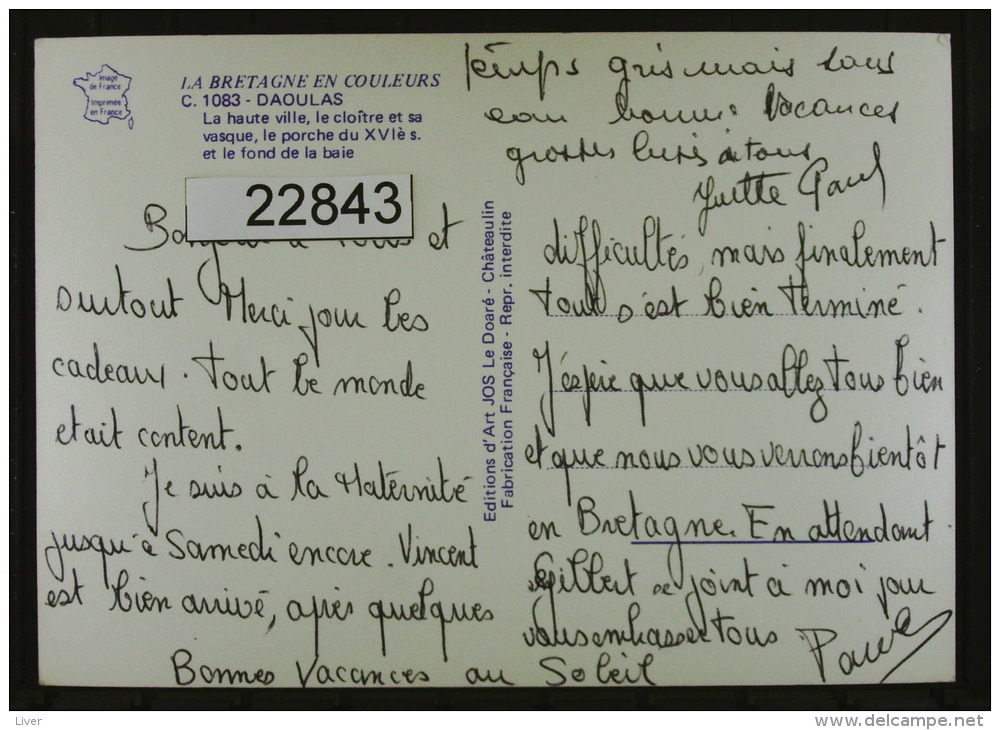 Image
de France
Imprimée
en France
LA BRETAGNE EN COULEURS
C. 1083 - DAOULAS
La haute ville, le cloître et sa
vasque, le porche du XVIè s.
et le fond de la baie
22843
Temps gris mais sans
eau bonnes Vacances
grosses bises à tous
Yvette Paul
Bonjour à Tous et
surtout Merci pour les
cadeaux. Tout le monde
etait content.
Je suis à la Maternité
jusqu'à Samedi encore. Vincent
est bien arrivé, après quelques
difficultés, mais finalement
tout s'est bien terminé.
J'espère que vous allez tous bien
et que nous vous verrons bientôt
en Bretagne. En attendant
Gilbert se joint à moi pour
vous embrasser tous
Bonnes Vacances au Soleil
Editions d'Art JOS Le Doaré - Châteaulin
Fabrication Française - Repr. interdite
Liver
www.delcampe.net